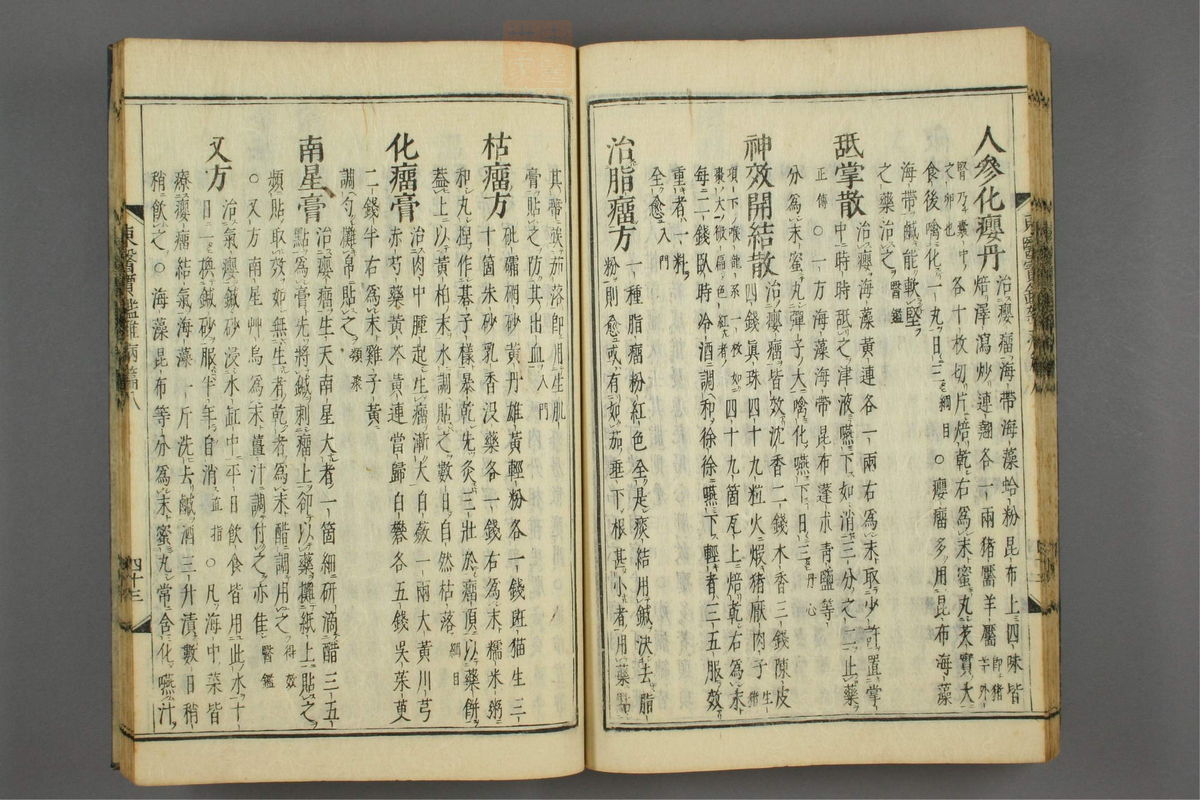 人參化癭丹 治癭瘤海帶海藻蛤粉昆布上四味皆
焙澤瀉炒連翹各一兩猪靨羊靨 卽猪羊外
腎乃囊中之卵也 各十枚切片焙乾右爲末蜜丸芡實大
食後噙化一丸日三 綱目 ○癭瘤多用昆布海藻
海帶鹹能軟堅
之藥治之 醫鑑
舐掌散 治癭海藻黃連各一兩右爲末取少許置掌
中時時舐之津液嚥下如消三分之二止藥
正傳 ○一方海藻海帶昆布蓬朮靑鹽等
分爲末蜜丸彈子大噙化嚥下日三 丹心
神效開結散 治癭瘤皆效沈香二錢木香三錢陳皮
四錢眞珠四十九粒火煆猪厭肉子 生猪
項下喉龍系一枚如棗大微扁色紅者 四十九箇瓦上焙乾右爲末
每二錢臥時冷酒調和徐徐嚥下輕者三五服效
重者一料
全愈 入門
治脂瘤方 一種脂瘤粉紅色全是痰結用鍼決去脂
粉則愈或有如茄垂下根甚小者用藥點
其蔕頭茄落卽用生肌
膏貼之防其出血 入門
枯瘤方 砒礵硇砂黃丹雄黃輕粉各一錢斑猫生三
十箇朱砂乳香沒藥各一錢右爲末糯米粥
和丸捏作棊子樣暴乾先灸三壯於瘤頂以藥餠
蓋上以黃柏末水調貼之數日自然枯落 綱目
化瘤膏 治肉中腫起生瘤漸大白蘞一兩大黃川芎
赤芍藥黃芩黃連當歸白礬各五錢吳茱萸
二錢半右爲末雞子黃
調勻攤帛貼之 類聚
南星膏 治癭瘤生天南星大者一箇細硏滴醋三五
點爲膏先將鍼刺瘤上却以藥攤紙上貼之
頻貼取效如無生者乾者爲末醋調用之 得效
○又方南星艸烏爲末薑汁調付之亦佳 醫鑑
又方 治氣癭鍼砂浸水缸中平日飮食皆用此水十
日一換鍼砂服半年自消 直指 ○凡海中菜皆
療癭瘤結氣海藻一斤洗去鹹酒三升漬數日稍
稍飮之○海藻昆布等分爲末蜜丸常含化嚥汁
東醫寶鑑雜病篇八
四十三